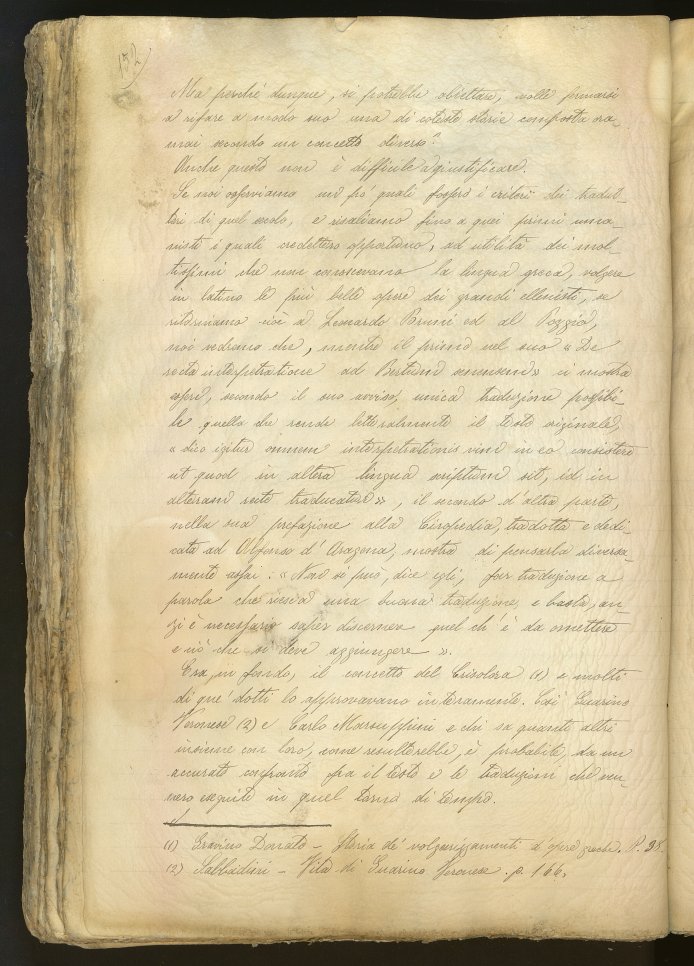 172
Ma perché dunque, si potrebbe obiettare, volle provarsi
a rifare a modo suo una di coteste storie composta ora-
mai secondo un concetto diverso?
Anche questo non è difficile a giustificare.
Se noi osserviamo un pò quali fossero i criterii dei tradut-
tori di quel secolo, e risaliamo fino a quei primi uma-
nisti i quali credettero opportuno, ad utilità dei mol-
tissimi che non conoscevano la lingua greca, volgere
in latino le più belle opere dei grandi ellenisti, se
ritorniamo cioè a Leonardo Bruni ed al Poggio,
noi vedremo che, mentre il primo nel suo « De
recta interpretatione ad Bertum senensem» ci mostra
essere, secondo il suo avviso, unica traduzione possibi-
le quella che rende letteralmente il testo originale,
« dico igitur omnem interpretationis vim in eo consistere
ut quod in altera lingua scriptum sit, id in
alteram recte traducatur», il secondo d'altra parte,
nella sua prefazione alla Ciropedia, tradotta e dedi-
cata ad Alfonso d'Aragona, mostra di pensarla diversa-
mente assai: « Non si può, dice egli, far traduzione a
parola che riesca una buona traduzione, e basta, an-
zi è necessario saper discernere quel ch'è da omettere
e ciò che si deve aggiungere ».
Era, in fondo, il concetto del Crisolora (1) e molti
di que' dotti lo approvavano interamente. Così Guarino
Veronese (2) e Carlo Marsuppini e chi sa quanti altri
insieme con loro, come resulterebbe, è probabile, da un
accurato confronto fra il testo e le traduzioni che ven-
nero eseguite in quel torno di tempo.
(1) Gravino Donato - Storia de' volgarizzamenti d'opere greche. P. 38.
(2) Sabbadini - Vita di Guarino Veronese. p. 166.